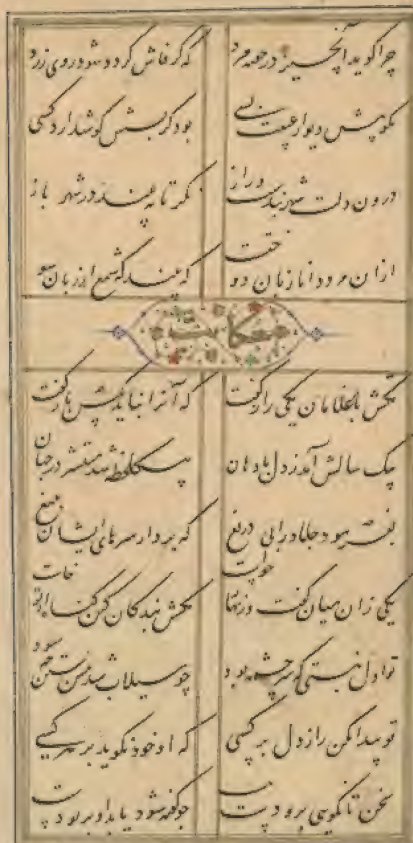 چرا گوید آنچیز در خفیه مرد که گر فاش گردد شود روی زرد
مکن پیش دیوار غیبت بسی بود کز پسش گوش دارد کسی
درون دلت شهربندست راز نگر تا نبیند در شهر باز
ازان مرد دانا زبان دوختست که بیند که شمع از زبان سوخت
حکایت
تکش با غلامان یکی راز گفت که آنرا نباید بکس باز گفت
بیک سالش آمد ز دل با دهان بیک لحظه شد منتشر در جهان
بفرمود جلاد را بی دریغ که بردار سرهای ایشان بتیغ
یکی زان میان گفت و زنهار خواست مکش بندگان کین گناه از تو خاست
تو اول نبستی که سرچشمه بود چو سیلاب شد پیش بستن چه سود
تو پیدا مکن راز دل بر کسی که او خود بگوید بر هر کسی
سخن تا نگویی برو دست هست چو گفته شود یابد او بر تو دست